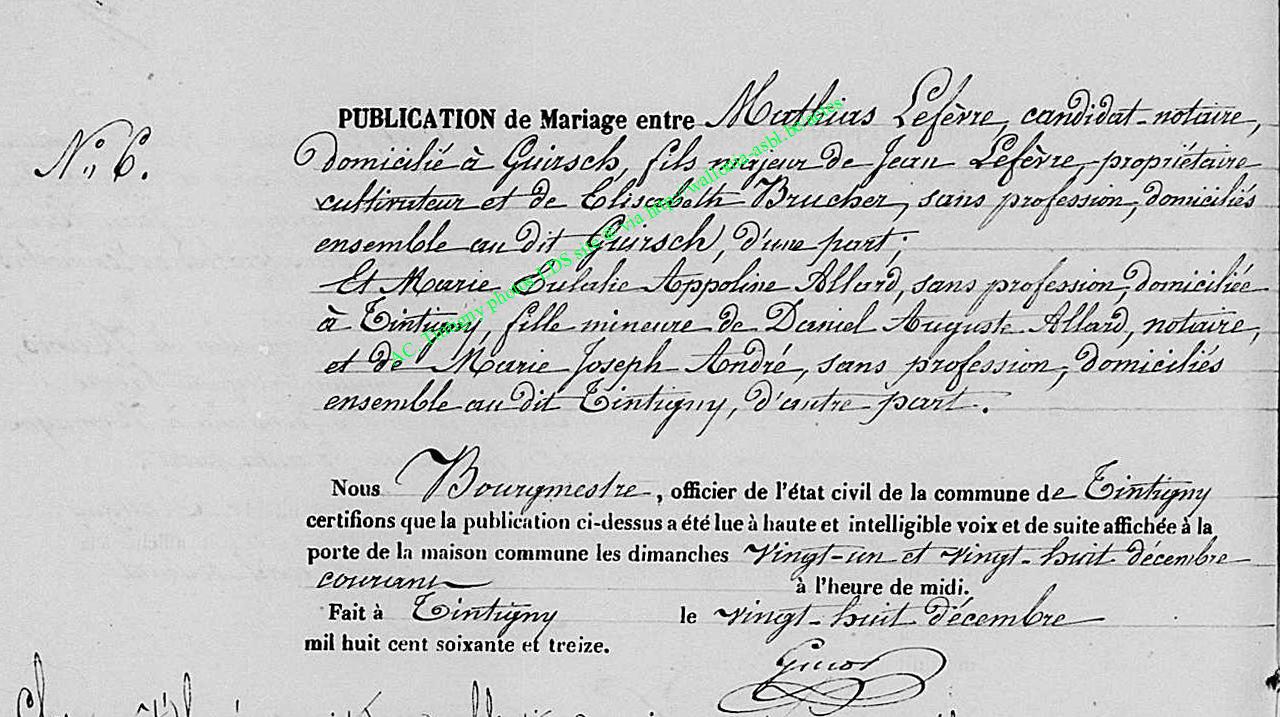 PUBLICATION de Mariage entre Mathias Lefèvre, candidat-notaire,
N.° 6.
domicilié à Guirsch, fils majeur de Jean Lefèvre, propriétaire
cultivateur et de Elisabeth Brucher, sans profession, domiciliés
ensemble au dit Guirsch, d'une part;
Et Marie Eulalie Appoline Allard, sans profession, domiciliée
à Tintigny, fille mineure de Daniel Auguste Allard, notaire,
et de Marie Joseph André, sans profession, domiciliés
ensemble au dit Tintigny, d'autre part.
AC_Tintigny photos LDS site @ via http wallonia-asbl.be
Nous Bourgmestre, officier de l'état civil de la commune de Tintigny
certifions que la publication ci-dessus a été lue à haute et intelligible voix et de suite affichée à la
porte de la maison commune les dimanches vingt-un et vingt-huit décembre
courant à l'heure de midi.
Fait à Tintigny le vingt-huit décembre
mil huit cent soixante et treize.